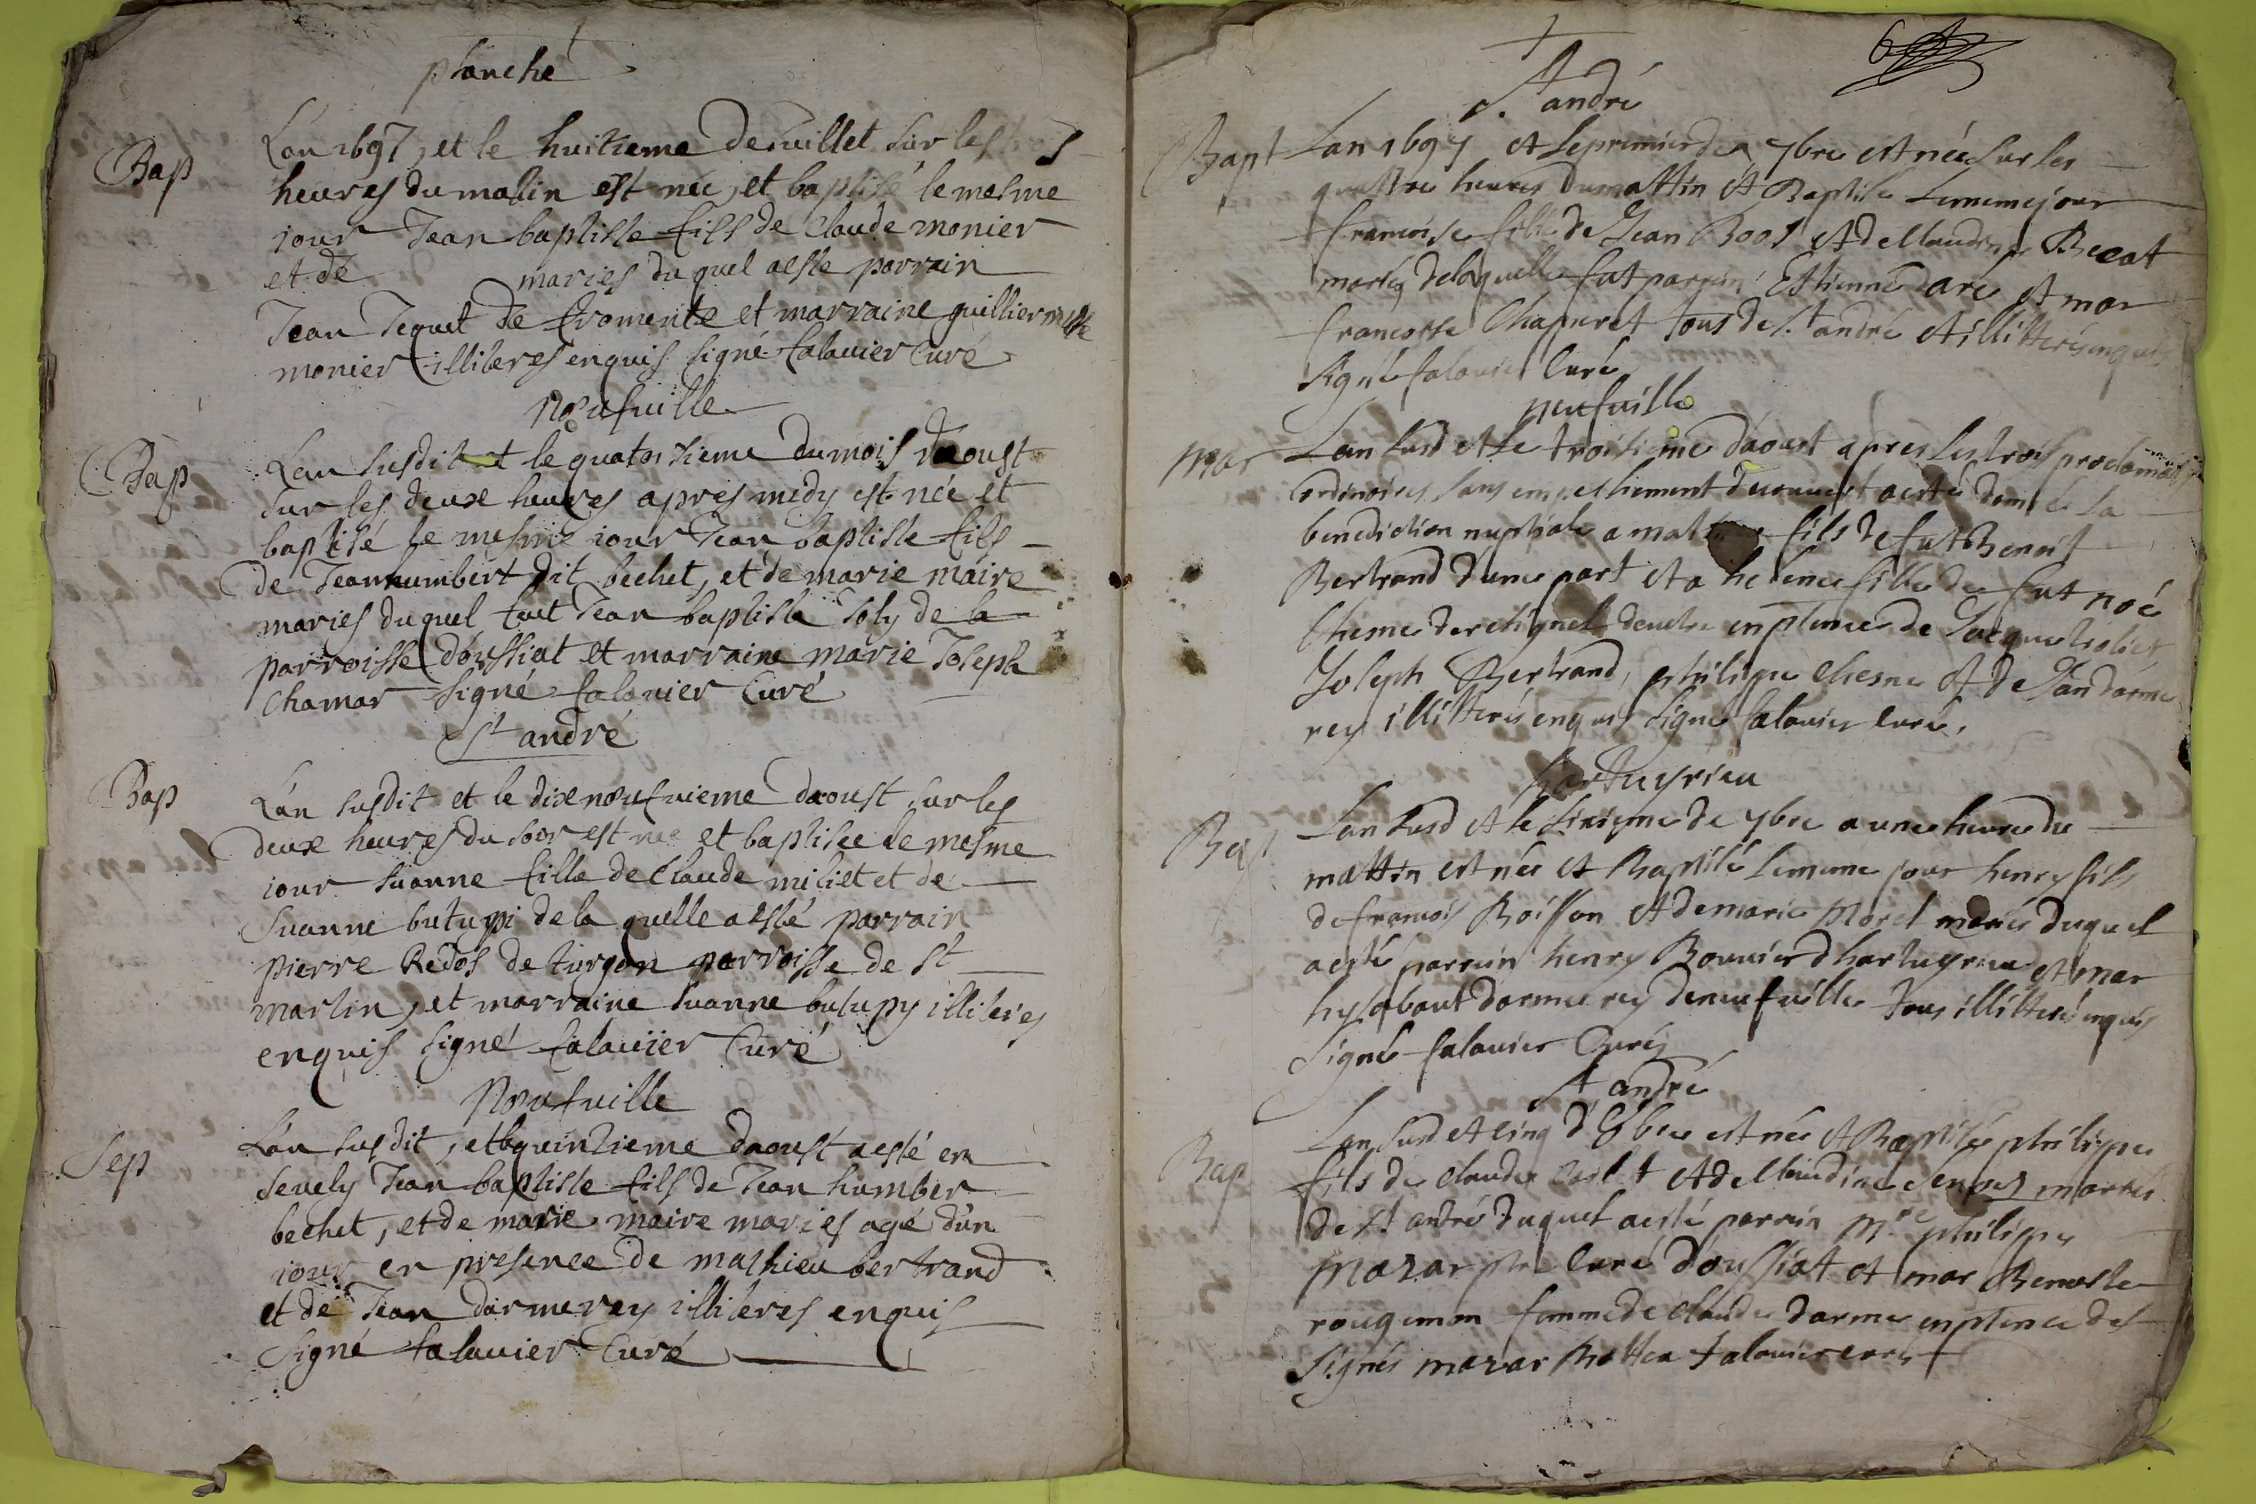 planche
Bap
L'an 1697, et le huitieme de Juillet sur les trois
heures du matin est née, et baptisé le mesme
jour Jean baptiste fils de Claude monier
et de maries du quel a esté parrain
Jean Jequet de fromente et marraine guilliermette
monier illiteres enquis signé falavier Curé
Noeufville
Bap
L'an susdit et le quatorzieme du mois daoust
sur les deux heures apres midy est née et
baptisé le mesme jour Jean baptiste fils
de Jean humbert dit bechet, et de marie maire
maries du quel fut Jean baptiste Joly de la
parroisse doussiat et marraine marie Joseph
Chamar signé falavier Curé
St andré
Bap
L'an susdit et le dixenoeufvieme daoust sur les
deux heures du soir est née et baptisée le mesme
jour Suanne fille de Claude miliet et de
Suanne butupi de la quelle a esté parrain
pierre Redos de turgon parroisse de St
martin, et marraine Suanne butupy illiteres
enquis signé falavier Curé
Noeufville
Sep
L'an susdit, et le quinzieme daoust a esté en
sevely Jean baptiste fils de Jean humber
bechet, et de marie maire maries agé d'un
jour en presence de mathieu bertrand
et de Jean darmerey illiteres enquis
signé falavier Curé
6
St andré
Bapt
Lan 1697 et le premier de 7bre est née sur les
quattre heures du mattin et Baptisée le meme jour
francoise fille de Jean Boos et de Claudine Becat
mariés de laquelle fut parrain Estienne daré et mar
francoise Chapuret tous de St andré et illitterés enquis
signé falavier Curé
neufville
Mar
Lan susd et le troisieme daoust apres les trois proclamations
ordinoires sans empeschement decouvert a esté donné la
benediction nuptiale a mathieu fils de fut Benoit
Bertrand d'une part et a helene fille de fut noé
Chesne de dautre en pnce de Jacque
Joseph Bertrand, philippe Chesne et de Jean darme
rey illitterés enquis signé falavier Curé,
hautuyrieu
Bap
Lan susd et le sixieme de 7bre a une heure du
mattin est née et Baptisé le meme jour henry fils
de francois Boisson et de marie Morel mariés duquel
a esté parrain henry Bouvier d hartuyrieu et mar
hysabaut darmerey de neufville tous illitterés enquis
signé falavier Curé
St andré
Bap
Lan susd et cinq d'8bre est née et Baptisée philippe
fils de claude et de Claudine mariés
de St andré duquel a esté parrain Mre philippe
Mazar ptre Curé doussiat et mar Benoiste
rougemon femme de claude darme en pnce des
signés mazar falavier curé